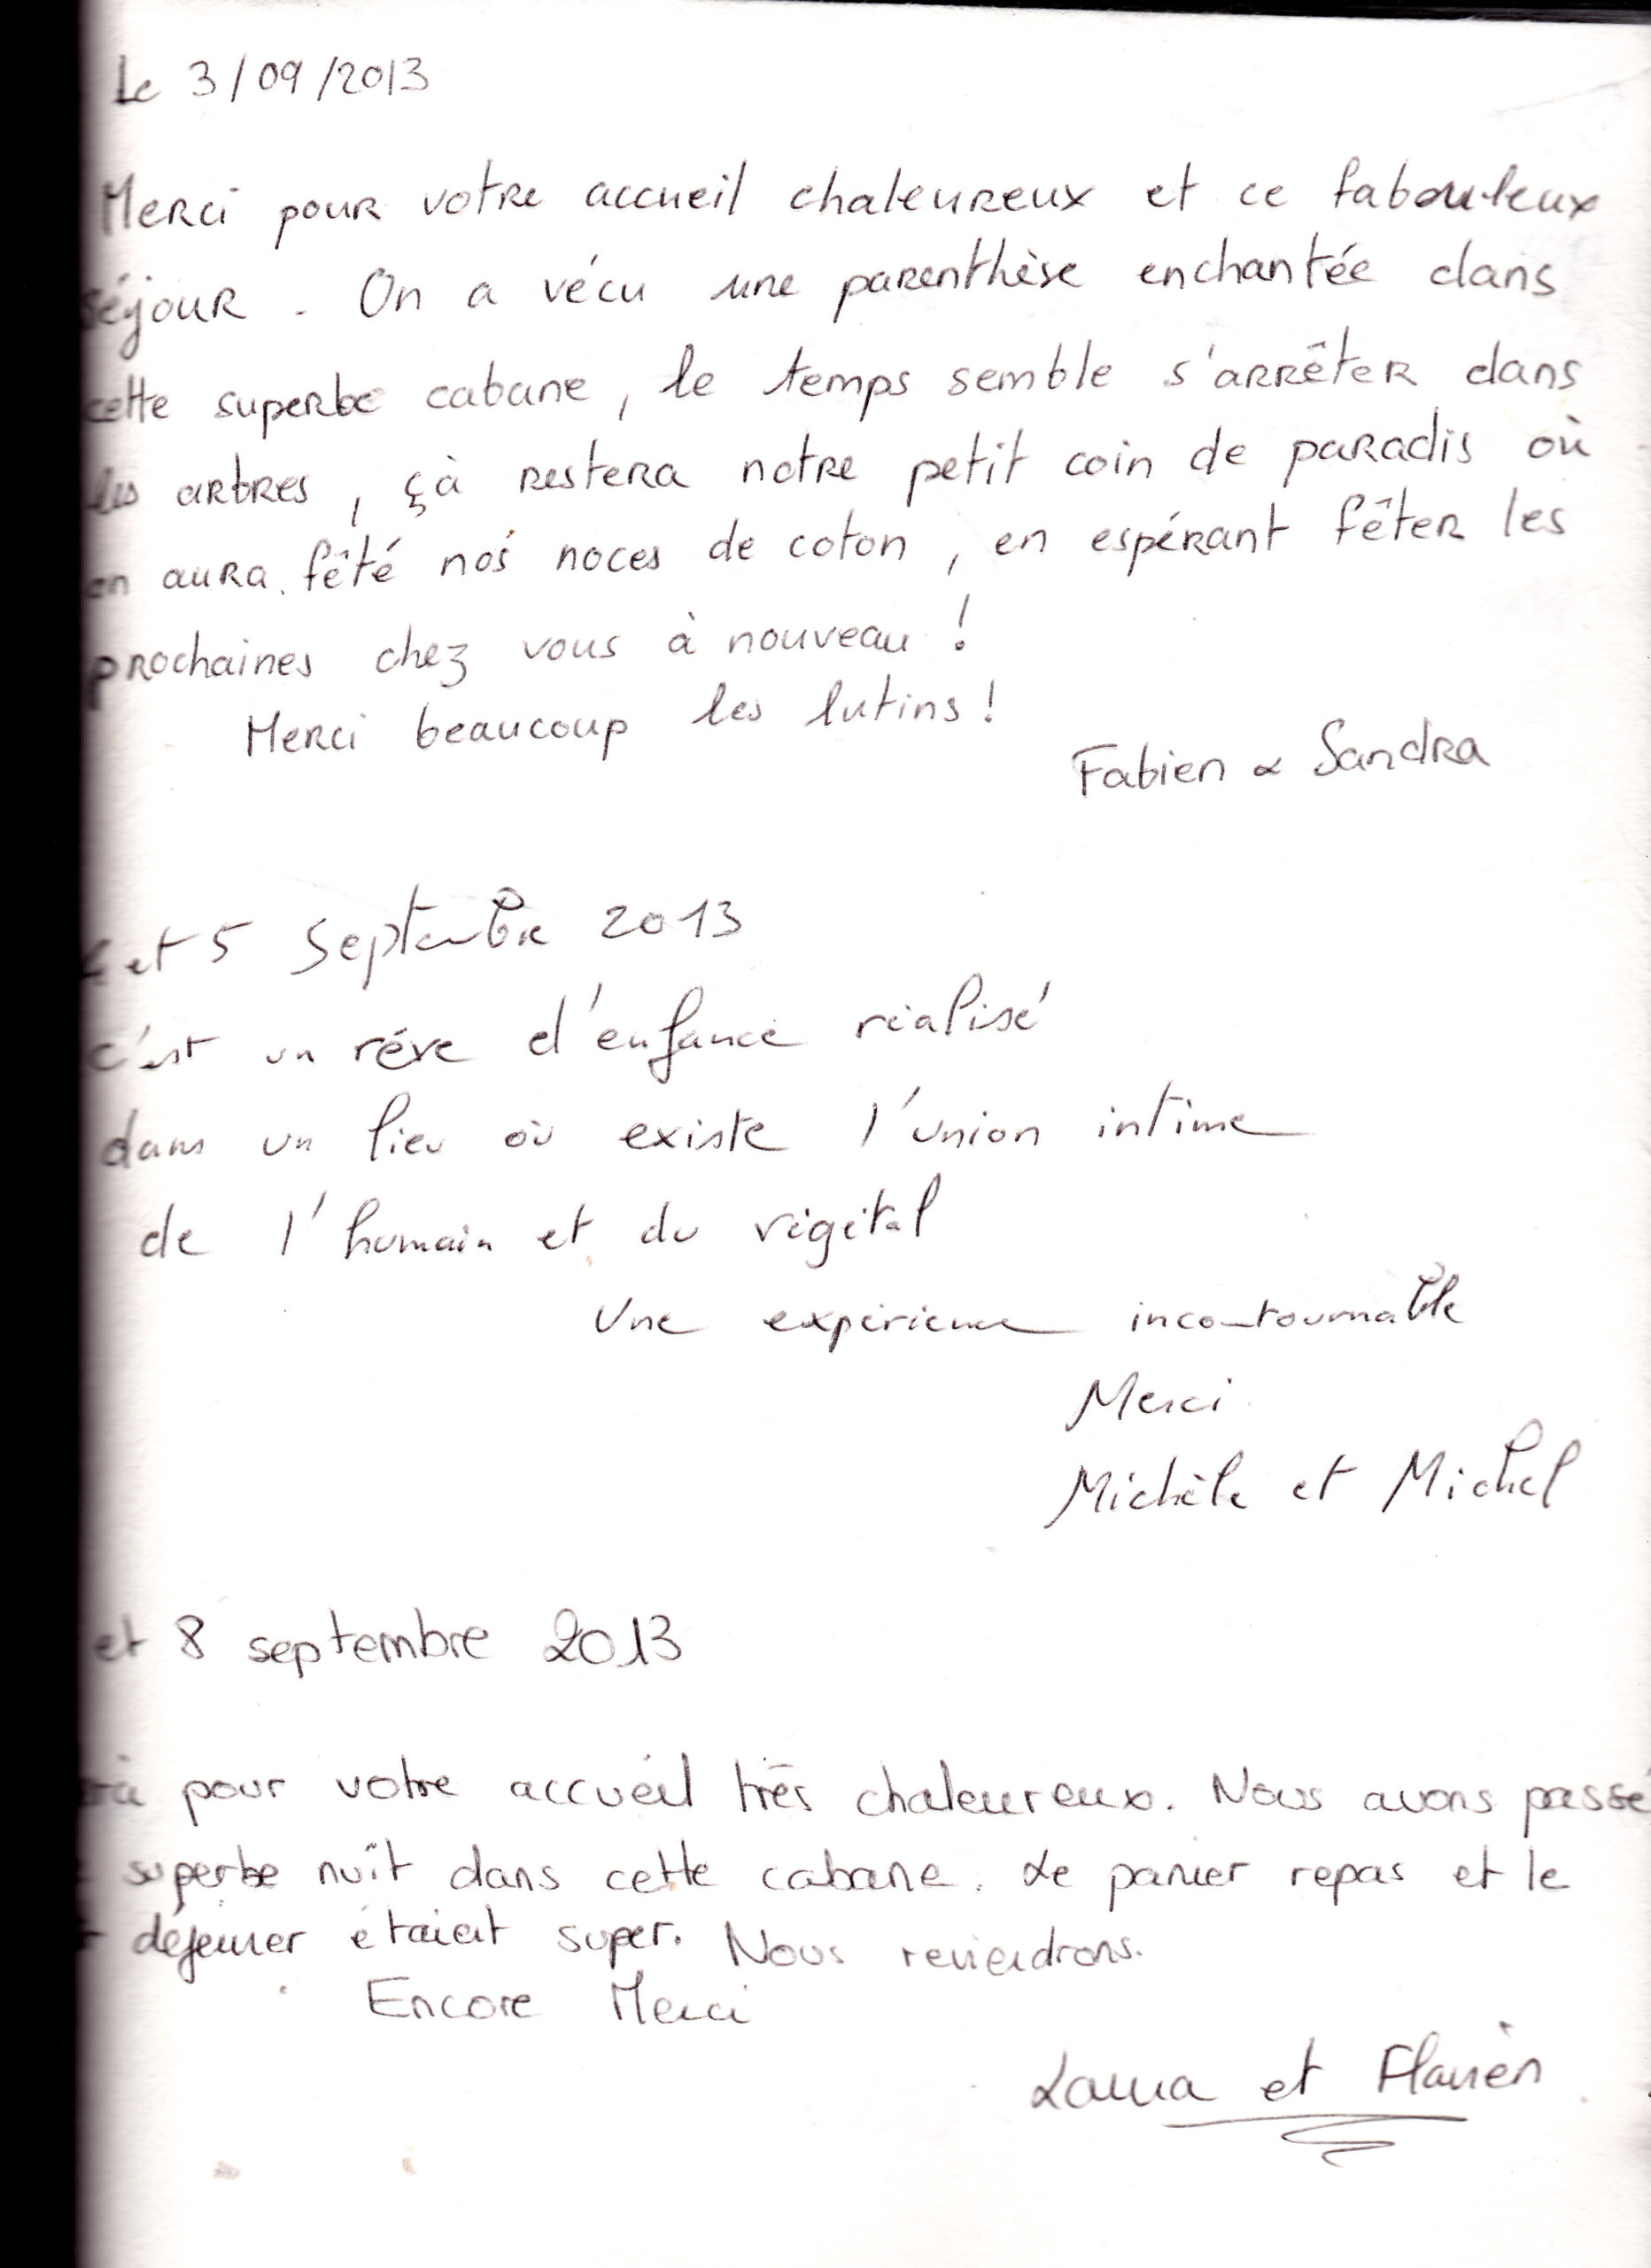 Le 3/09/2013
Merci pour votre accueil chaleureux et ce fabouleux
séjour. On a vécu une parenthèse enchantée dans
cette superbe cabane, le temps semble s'arrêter dans
les arbres, çà restera notre petit coin de paradis où
on aura fêté nos noces de coton, en espérant fêter les
prochaines chez vous à nouveau !
Merci beaucoup les lutins !
Fabien & Sandra
4 et 5 Septembre 2013
c'est un rêve d'enfance réalisé
dans un lieu où existe l'union intime
de l'humain et du végétal
Une expérience incontournable
Merci
Michèle et Michel
et 8 septembre 2013
pour votre accueil très chaleureux. Nous avons passé
superbe nuit dans cette cabane. Le panier repas et le
déjeuner étaient super. Nous reviendrons.
Encore Merci
Laura et Flavien